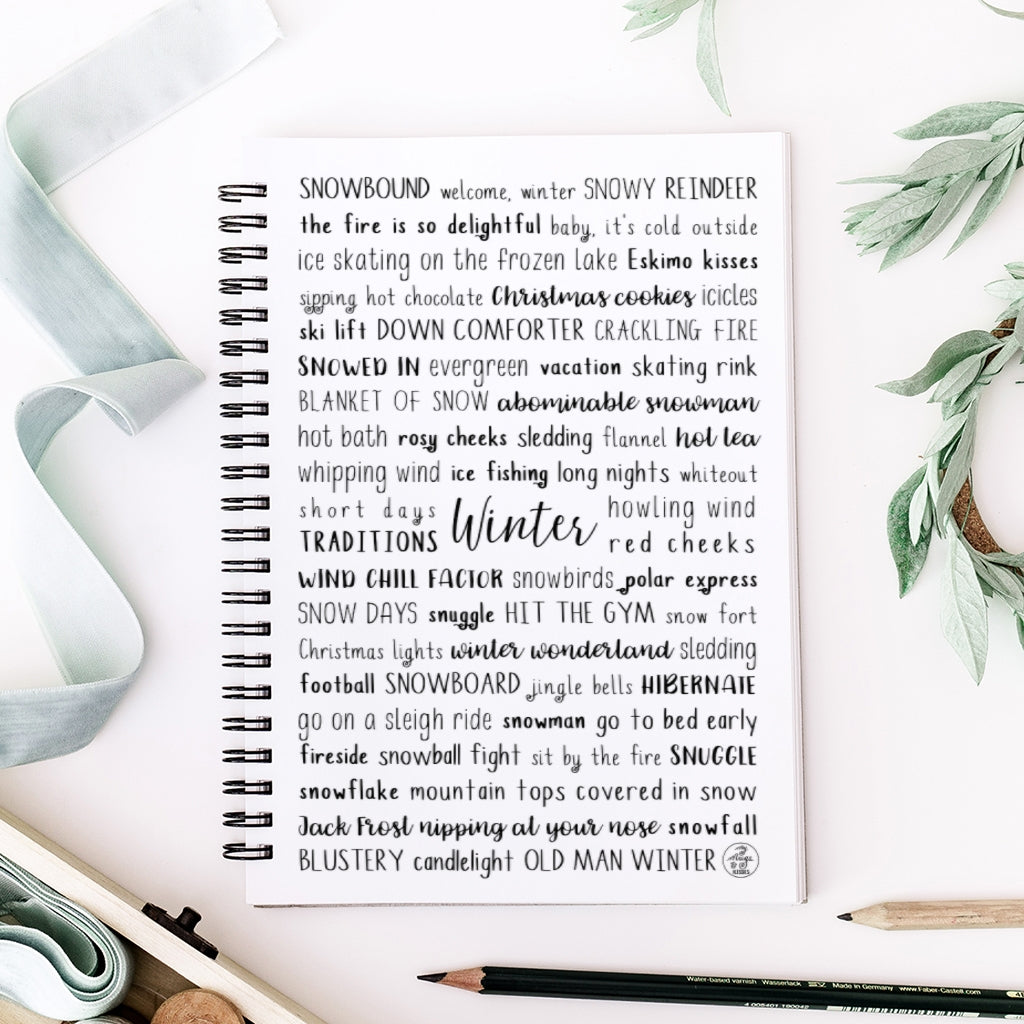 SNOWBOUND welcome, winter SNOWY REINDEER
the fire is so delightful baby, it's cold outside
ice skating on the frozen lake Eskimo kisses
sipping hot chocolate Christmas cookies icicles
ski lift DOWN COMFORTER CRACKLING FIRE
SNOWED IN evergreen vacation skating rink
BLANKET OF SNOW abominable snowman
hot bath rosy cheeks sledding flannel hot tea
whipping wind ice fishing long nights whiteout
short days Winter howling wind
TRADITIONS red cheeks
WIND CHILL FACTOR snowbirds polar express
SNOW DAYS snuggle HIT THE GYM snow fort
Christmas lights winter wonderland sledding
football SNOWBOARD jingle bells HIBERNATE
go on a sleigh ride snowman go to bed early
fireside snowball fight sit by the fire SNUGGLE
snowflake mountain tops covered in snow
Jack Frost nipping at your nose snowfall
BLUSTERY candlelight OLD MAN WINTER
KISSES
Water-based varnish Wasserlack Made in Germany www.Faber-Castell.com